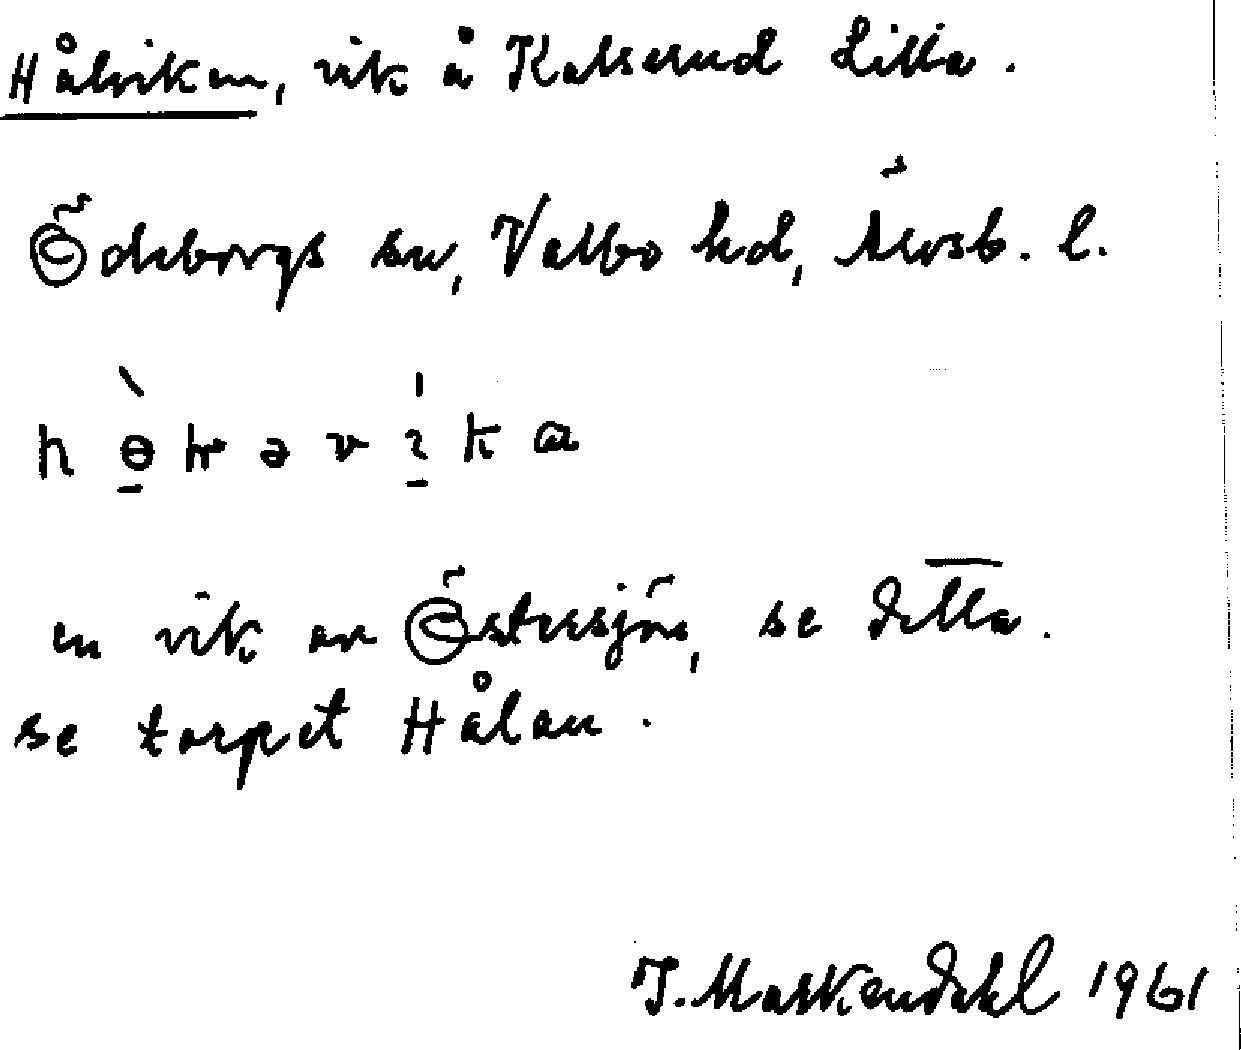 Hålviken, vik å Kalserud Lilla.
Ödeborgs sn, Valbo hd, Älvsb. l.
en vik av Östresjön, se detta.
se torpet Hålan.
J. Markendahl 1961